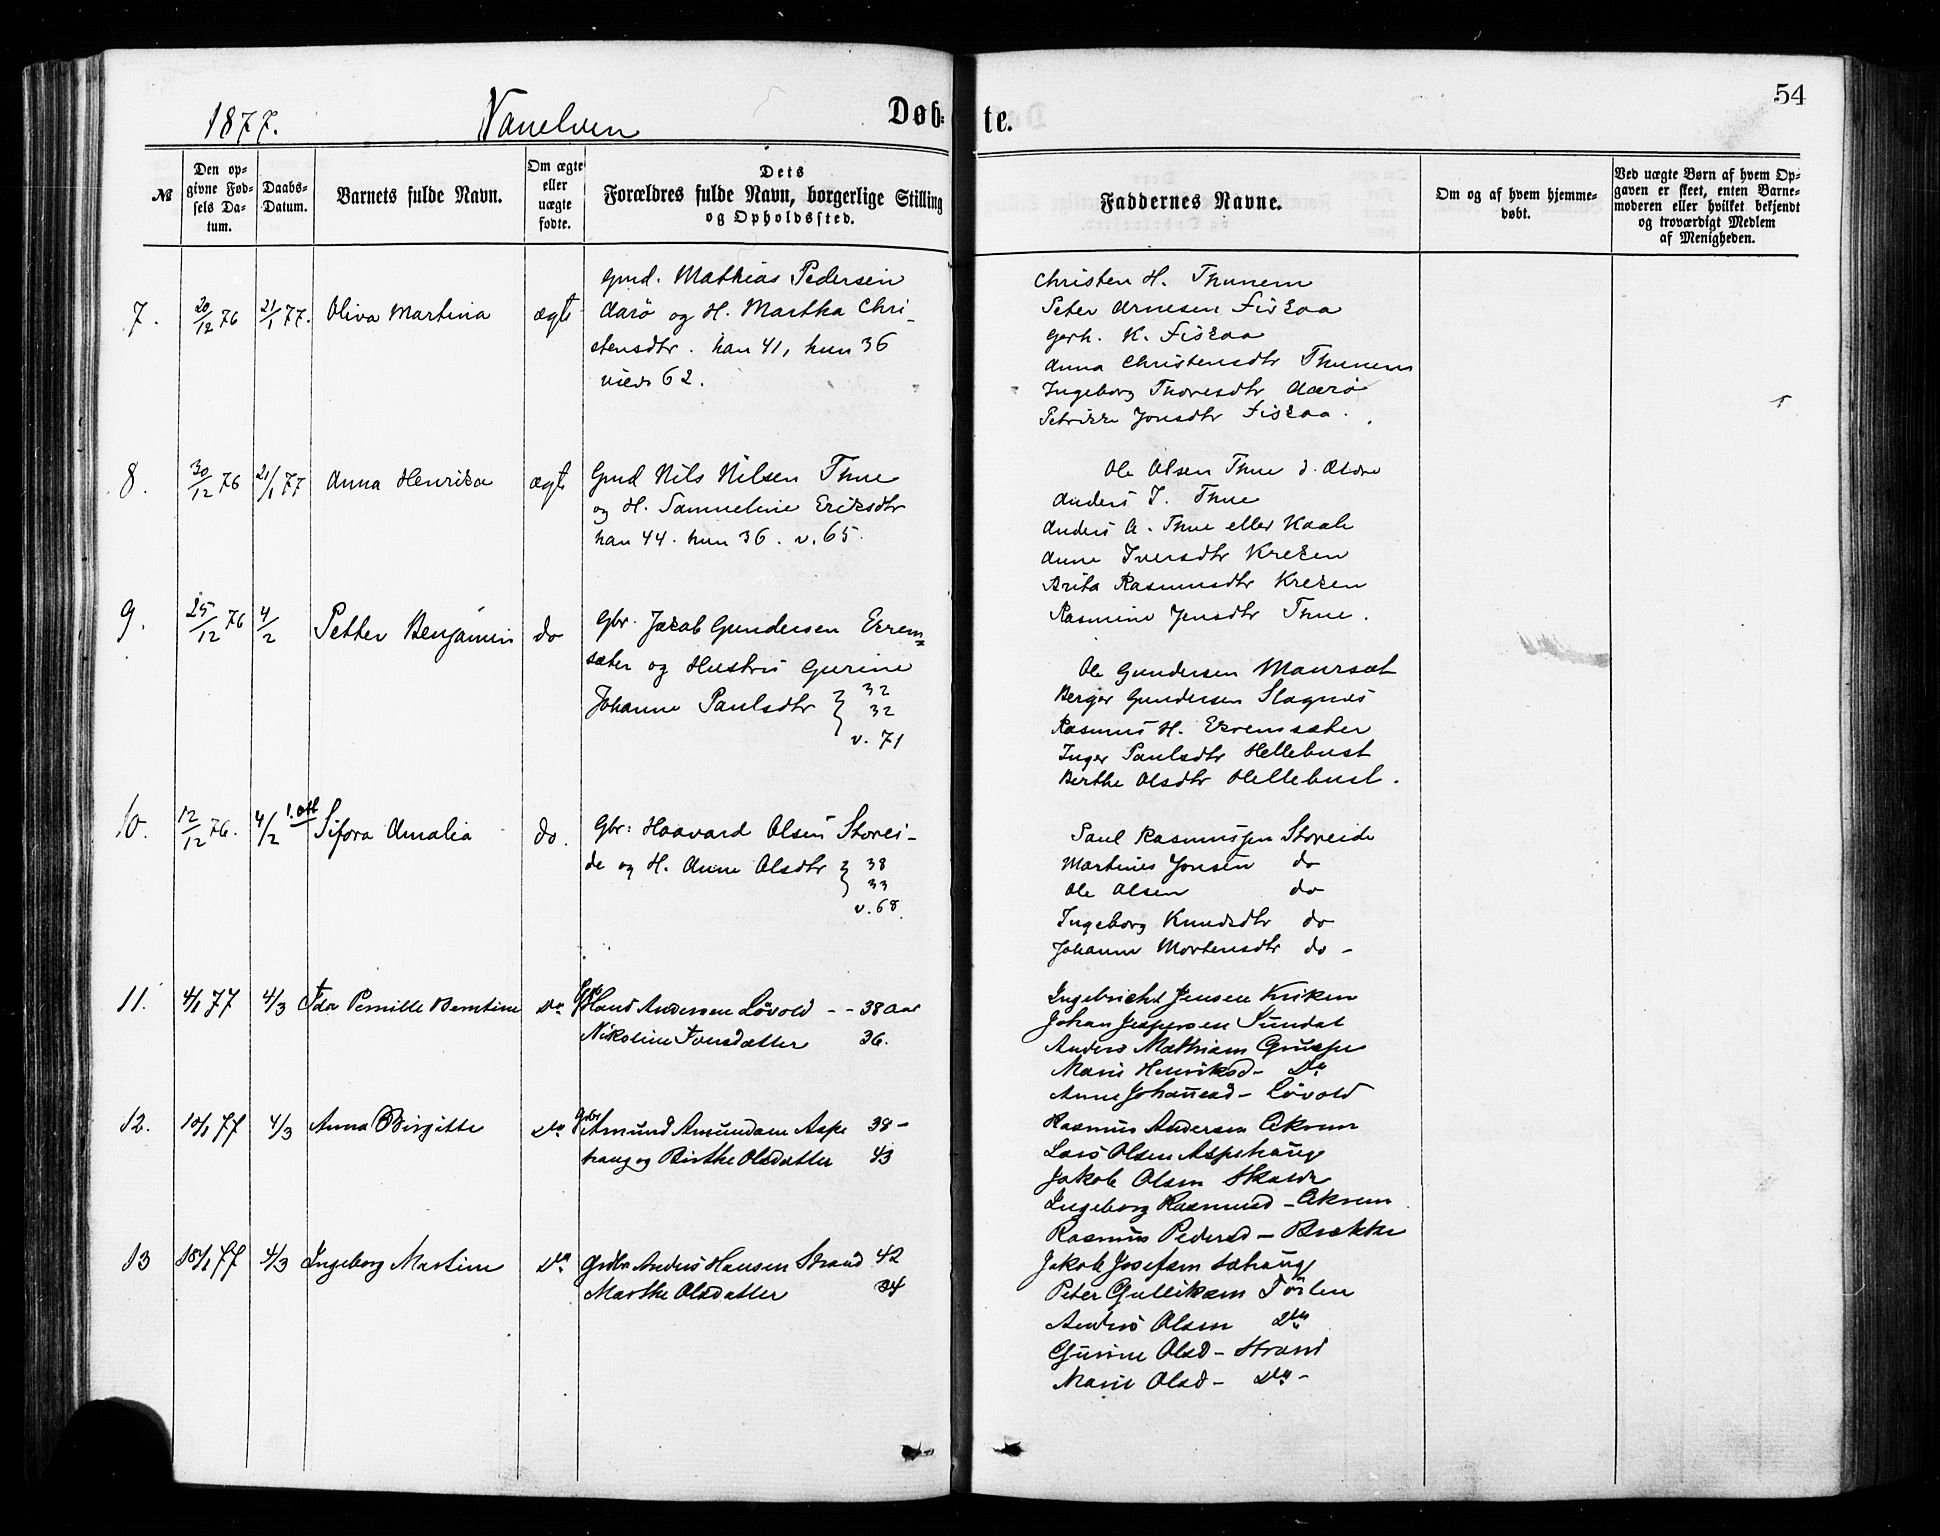 1877. Vanelven Døb- te. 54
№
Den op-
givne Fød-
sels Da-
tum.
Daabs-
Datum.
Barnets fulde Navn.
Om ægte
eller
uægte
fødte.
Dets
Forældres fulde Navn, borgerlige Stilling
og Opholdssted.
Faddernes Navne.
Om og af hvem hjemme-
døbt.
Ved uægte Børn af hvem Op-
gaven er skeet, enten Barne-
moderen eller hvilket bekjendt
og troværdigt Medlem
af Menigheden.
7. 20/12 76 21/1 77. Oliva Martina ægte
Gmd. Mathias Pedersen
Aarø og H. Martha Chri-
stensdtr. han 41, hun 36
viede 62.
Christen H. Thunem
Peter Arnesen Fiskaa
Gerh. K. Fiskaa
Anna Christensdtr Thunem
Ingeborg Thoresdtr Aarø
Petrikke Jonsdtr Fiskaa.
8. 30/12 76 21/1 77 Anna Henrika ægte
Gmd Nils Nilsen Thue
og H. Samueline Eriksdtr
han 44. hun 36. v. 65.
Ole Olsen Thue d. Ældre
Anders J. Thue
Anders A. Thue eller
Anne Iversdtr Kreken
Brita Rasmusdtr Kreken
Rasmine Jensdtr Thue.
9. 25/12 76 4/2 Petter Benjamin do
Gbr. Jakob Gundersen Ekrem-
sæter og Hustru Gurine
Johanne Paulsdtr } 32
32
v. 71
Ole Gundersen Maursæt
Berger Gundersen Slagnes
Rasmus H. Ekremsæter
Inger Paulsdtr Hellebust
Berthe Olsdtr Hellebust.
10. 12/12 76. 4/2 Sifora Amalia do.
Gbr: Haavard Olsen Storei-
de og H. Anne Olsdtr } 38
33
v. 68.
Paul Rasmussen Storeide
Martines Jonsen do
Ole Olsen do
Ingeborg Knudsdtr do
Johanne Mortensdtr do -
11. 4/1 77 4/3 Ida Pernille Berntine Do
Hans Andersen Løvold - - 38 aar
Nikoline Jonsdatter 36.
Ingebricht Jensen Kriken
Johan Jespersen Sundal
Anders Mathisen
Marie Henriksd- Do
Anne Johannesd- Løvold
12. 10/1 77 4/3 Anna Birgitte Do
Gbr Amund Amundsen Aspe 38 -
haug og Birthe Olsdatter 43
Rasmus Andersen Ekrem
Lars Olsen Aspehaug
Jakob Olsen
Ingeborg Rasmusd- Ekrem
Rasmus Pedersd- Brekke
13 18/1 77 4/3 Ingeborg Martine Do
Gdbr Anders Hansen Strand 42
Marthe Olsdatter 34
Jakob Josefsen
Peter Gullikssen
Anders Olsen Do
Gurine Olsd- Strand
Marie Olsd- Do -